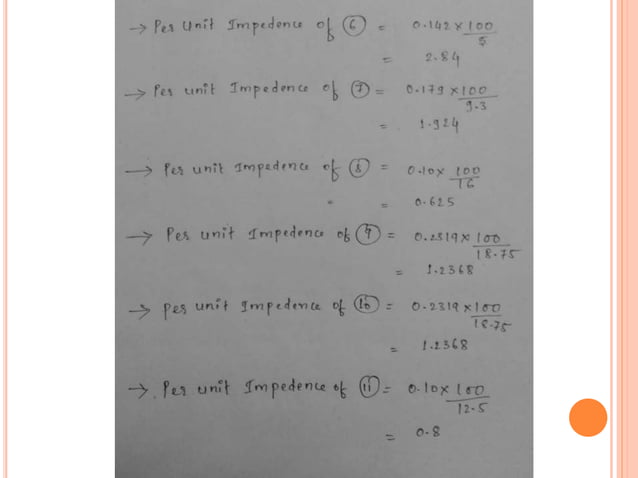 → Per Unit Impedence of ⑥ = 0.142 × 100/5
= 2.84
→ Per unit Impedence of ⑦ = 0.179 × 100/9.3
= 1.924
→ Per unit Impedence of ⑧ = 0.10 × 100/16
= = 0.625
→ Per unit Impedence of ⑨ = 0.2319 × 100/18.75
= 1.2368
→ per unit Impedence of ⑩ = 0.2319 × 100/18.75
= 1.2368
→ Per unit Impedence of ⑪ = 0.10 × 100/12.5
= 0.8